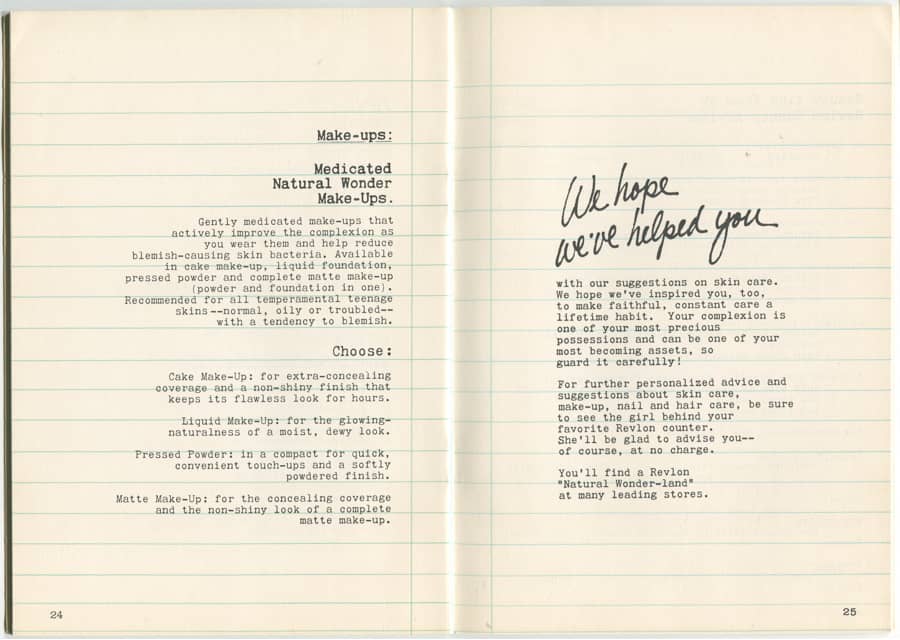 Make-ups:
Medicated
Natural Wonder
Make-Ups.
Gently medicated make-ups that
actively improve the complexion as
you wear them and help reduce
blemish-causing skin bacteria. Available
in cake make-up, liquid foundation,
pressed powder and complete matte make-up
(powder and foundation in one).
Recommended for all temperamental teenage
skins--normal, oily or troubled--
with a tendency to blemish.
Choose:
Cake Make-Up: for extra-concealing
coverage and a non-shiny finish that
keeps its flawless look for hours.
Liquid Make-Up: for the glowing-
naturalness of a moist, dewy look.
Pressed Powder: in a compact for quick,
convenient touch-ups and a softly
powdered finish.
Matte Make-Up: for the concealing coverage
and the non-shiny look of a complete
matte make-up.
24
We hope
we've helped you
with our suggestions on skin care.
We hope we've inspired you, too,
to make faithful, constant care a
lifetime habit. Your complexion is
one of your most precious
possessions and can be one of your
most becoming assets, so
guard it carefully!
For further personalized advice and
suggestions about skin care,
make-up, nail and hair care, be sure
to see the girl behind your
favorite Revlon counter.
She'll be glad to advise you--
of course, at no charge.
You'll find a Revlon
"Natural Wonder-land"
at many leading stores.
25